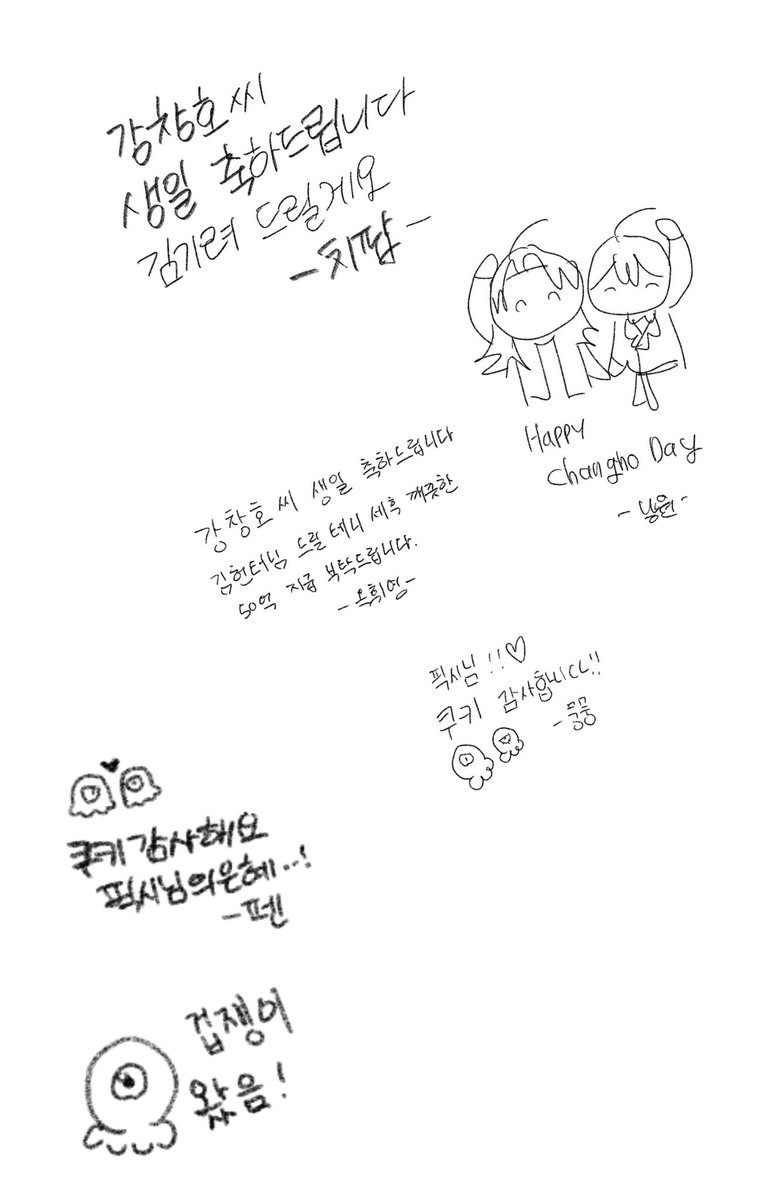 강창호씨
생일 축하드립니다
김기려 드릴게요
-치팝-
Happy
Changho Day
강창호씨 생일 축하드립니다
김헌터님 드릴테니 세흑 깨끗한
50억 지급 부탁드립니다.
-옥휘영-
픽시님!!♡
쿠키 감사합니다!!
-뭉뭉
쿠키 감사해요
픽시님의은혜..!
-펜
겁쟁이
왔음!